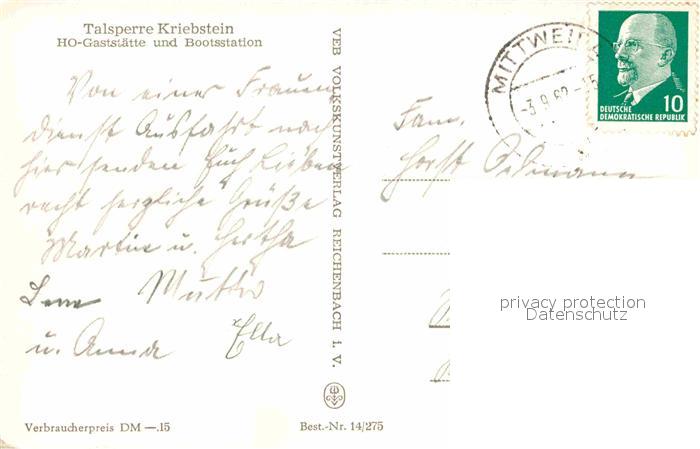 Talsperre Kriebstein
HO-Gaststätte und Bootsstation
Von einer Frauen
dienst Ausfahrt nach
hier senden Euch Lieben
recht herzliche Grüße
Martin u. Hertha
Lene Mutter
u. Anna Ella
VEB VOLKSKUNSTVERLAG REICHENBACH I. V.
Verbraucherpreis DM —.15
Best.-Nr. 14/275
MITTWEIDA
-3.9.62-15
10
DEUTSCHE
DEMOKRATISCHE REPUBLIK
Fam.
Horst
privacy protection
Datenschutz